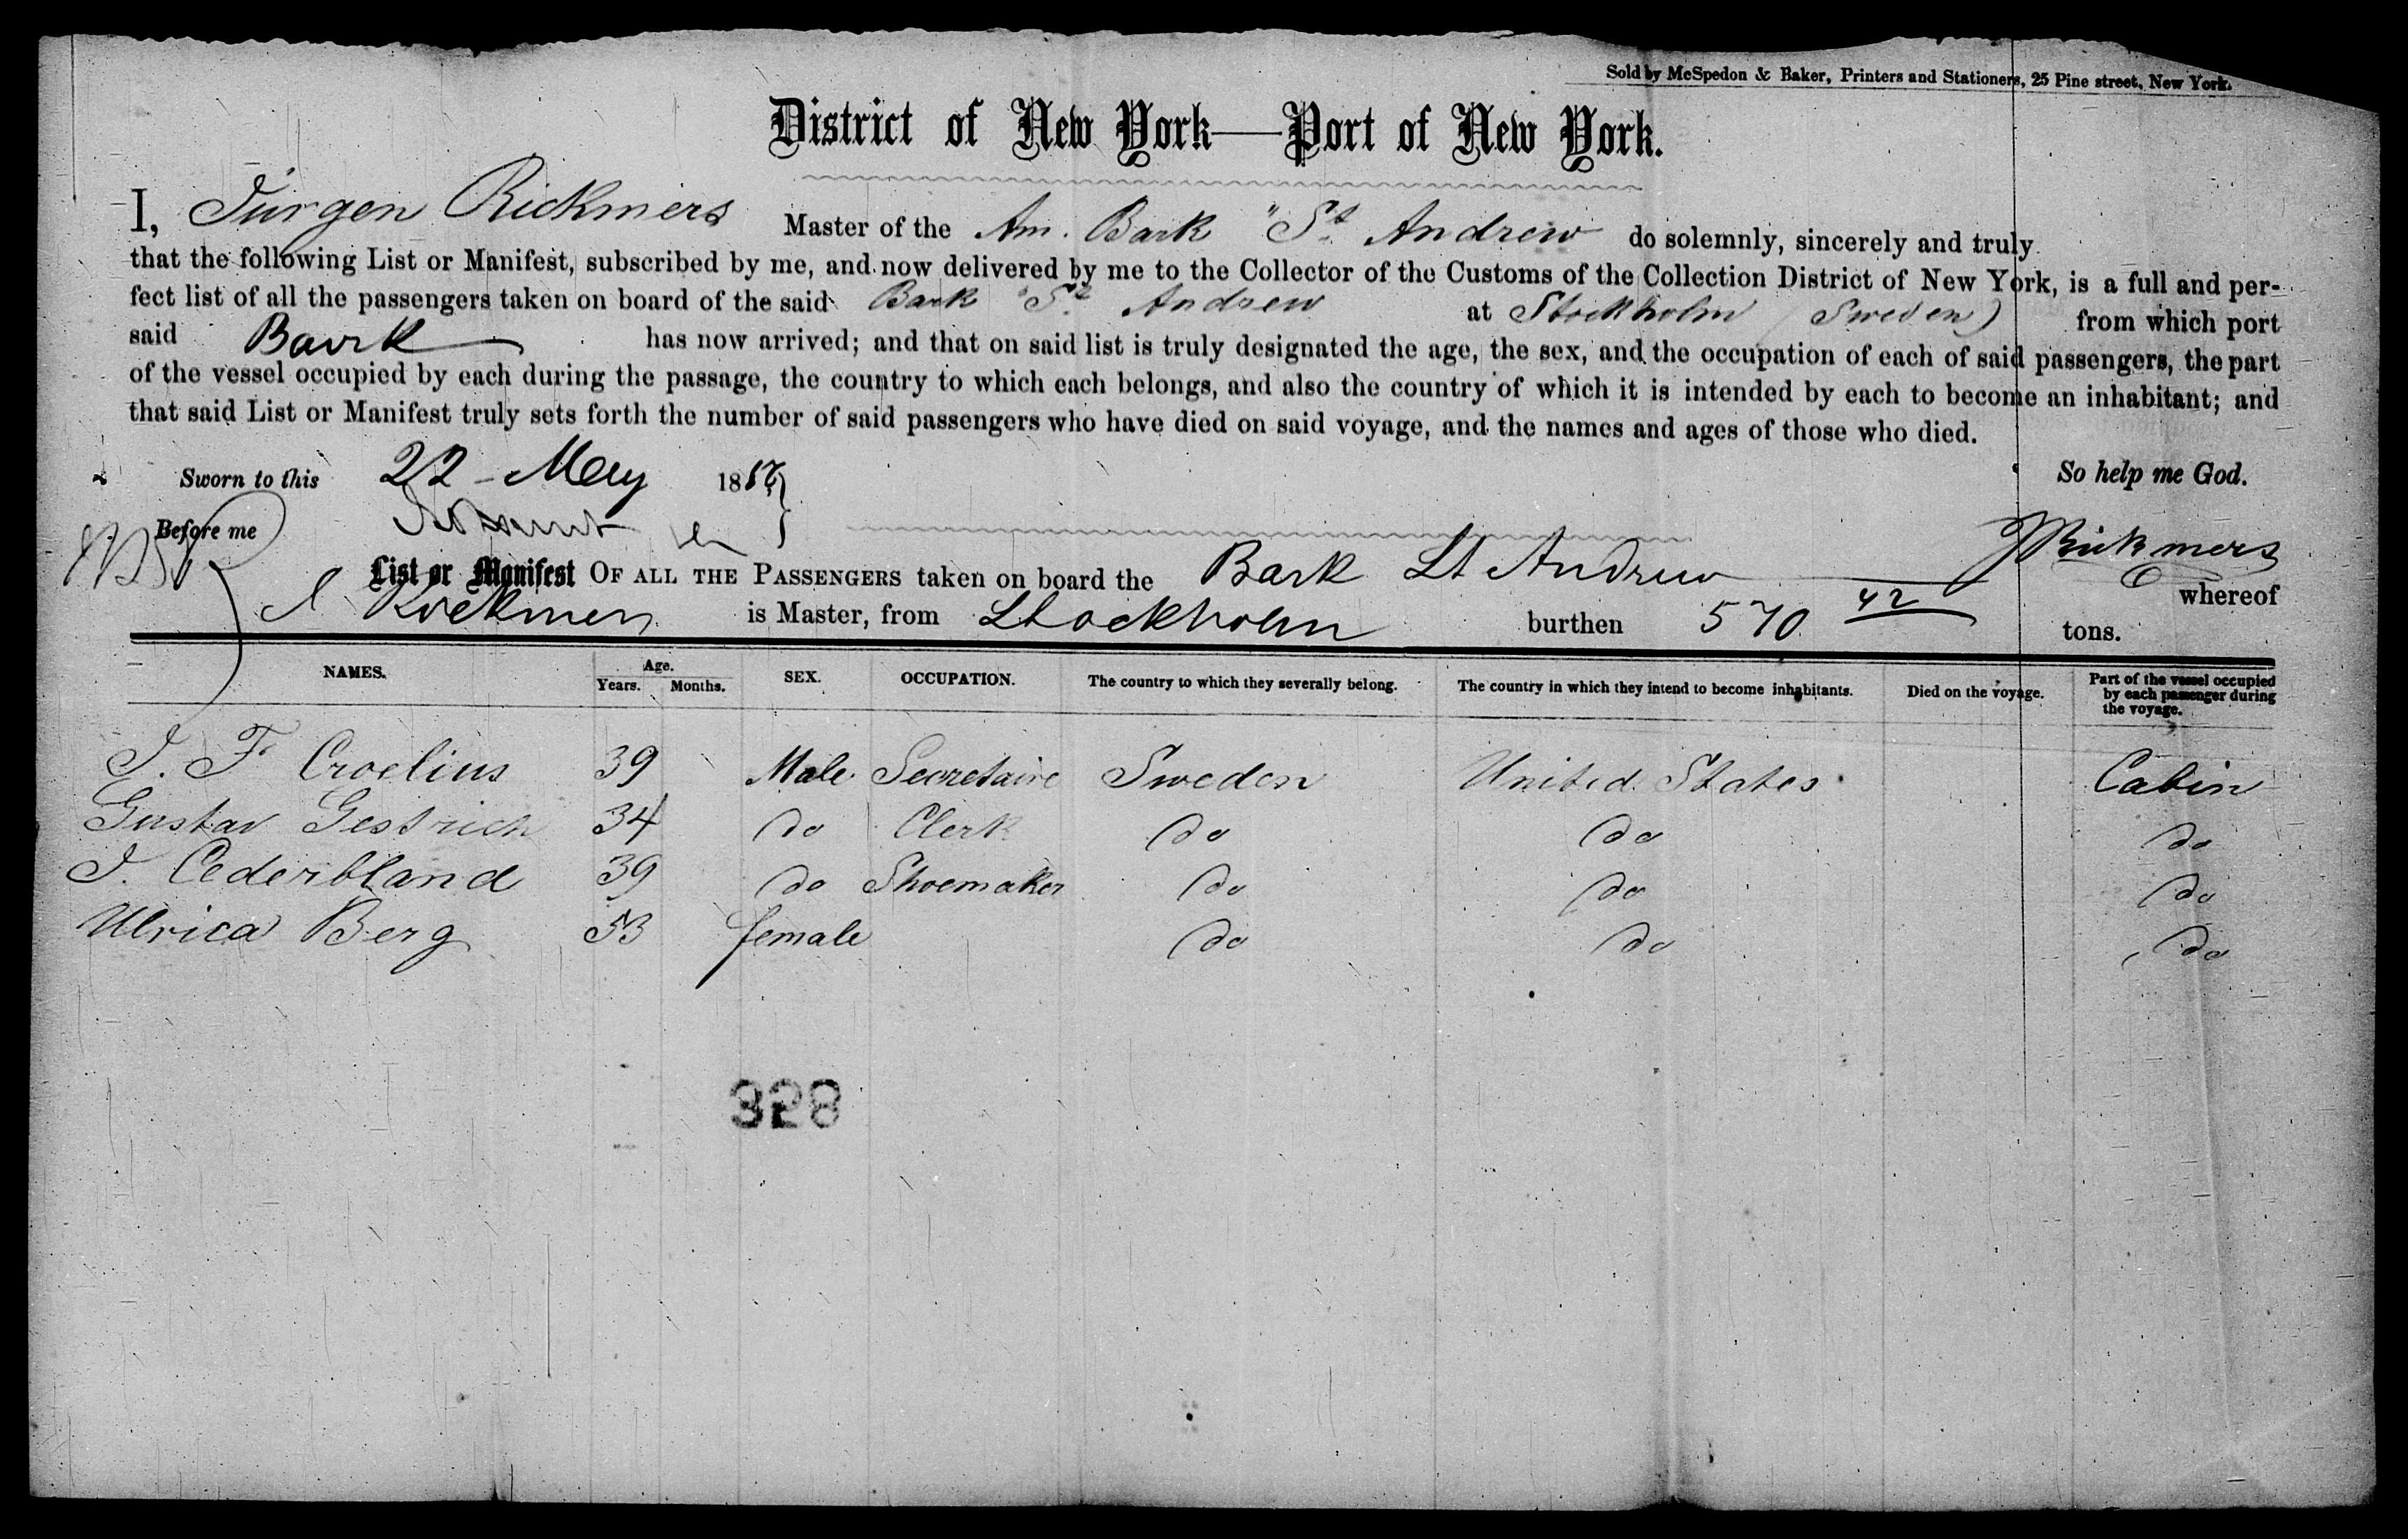 Sold by McSpedon & Baker, Printers and Stationers, 25 Pine street, New York.
District of New York—Port of New York.
I, Jurgen Rickmers Master of the Am. Bark "St Andrew do solemnly, sincerely and truly
that the following List or Manifest, subscribed by me, and now delivered by me to the Collector of the Customs of the Collection District of New York, is a full and per-
fect list of all the passengers taken on board of the said Bark "St Andrew at Stockholm (Sweden) from which port
said Bark has now arrived; and that on said list is truly designated the age, the sex, and the occupation of each of said passengers, the part
of the vessel occupied by each during the passage, the country to which each belongs, and also the country of which it is intended by each to become an inhabitant; and
that said List or Manifest truly sets forth the number of said passengers who have died on said voyage, and the names and ages of those who died.
Sworn to this 22 - May 18 So help me God.
Before me
JRickmers
List or Manifest OF ALL THE PASSENGERS taken on board the Bark St Andrew whereof
J Rickmers is Master, from Stockholm burthen 570 42 tons.
NAMES. Age. Years. Months. SEX. OCCUPATION. The country to which they severally belong. The country in which they intend to become inhabitants. Died on the voyage. Part of the vessel occupied by each passenger during the voyage.
J. F. Croelius 39 Male Secretaire Sweden United States Cabin
Gustav Gestrich 34 do Clerk do do do
J. Cederbland 39 do Shoemaker do do do
Ulrica Berg 53 female do do do
328